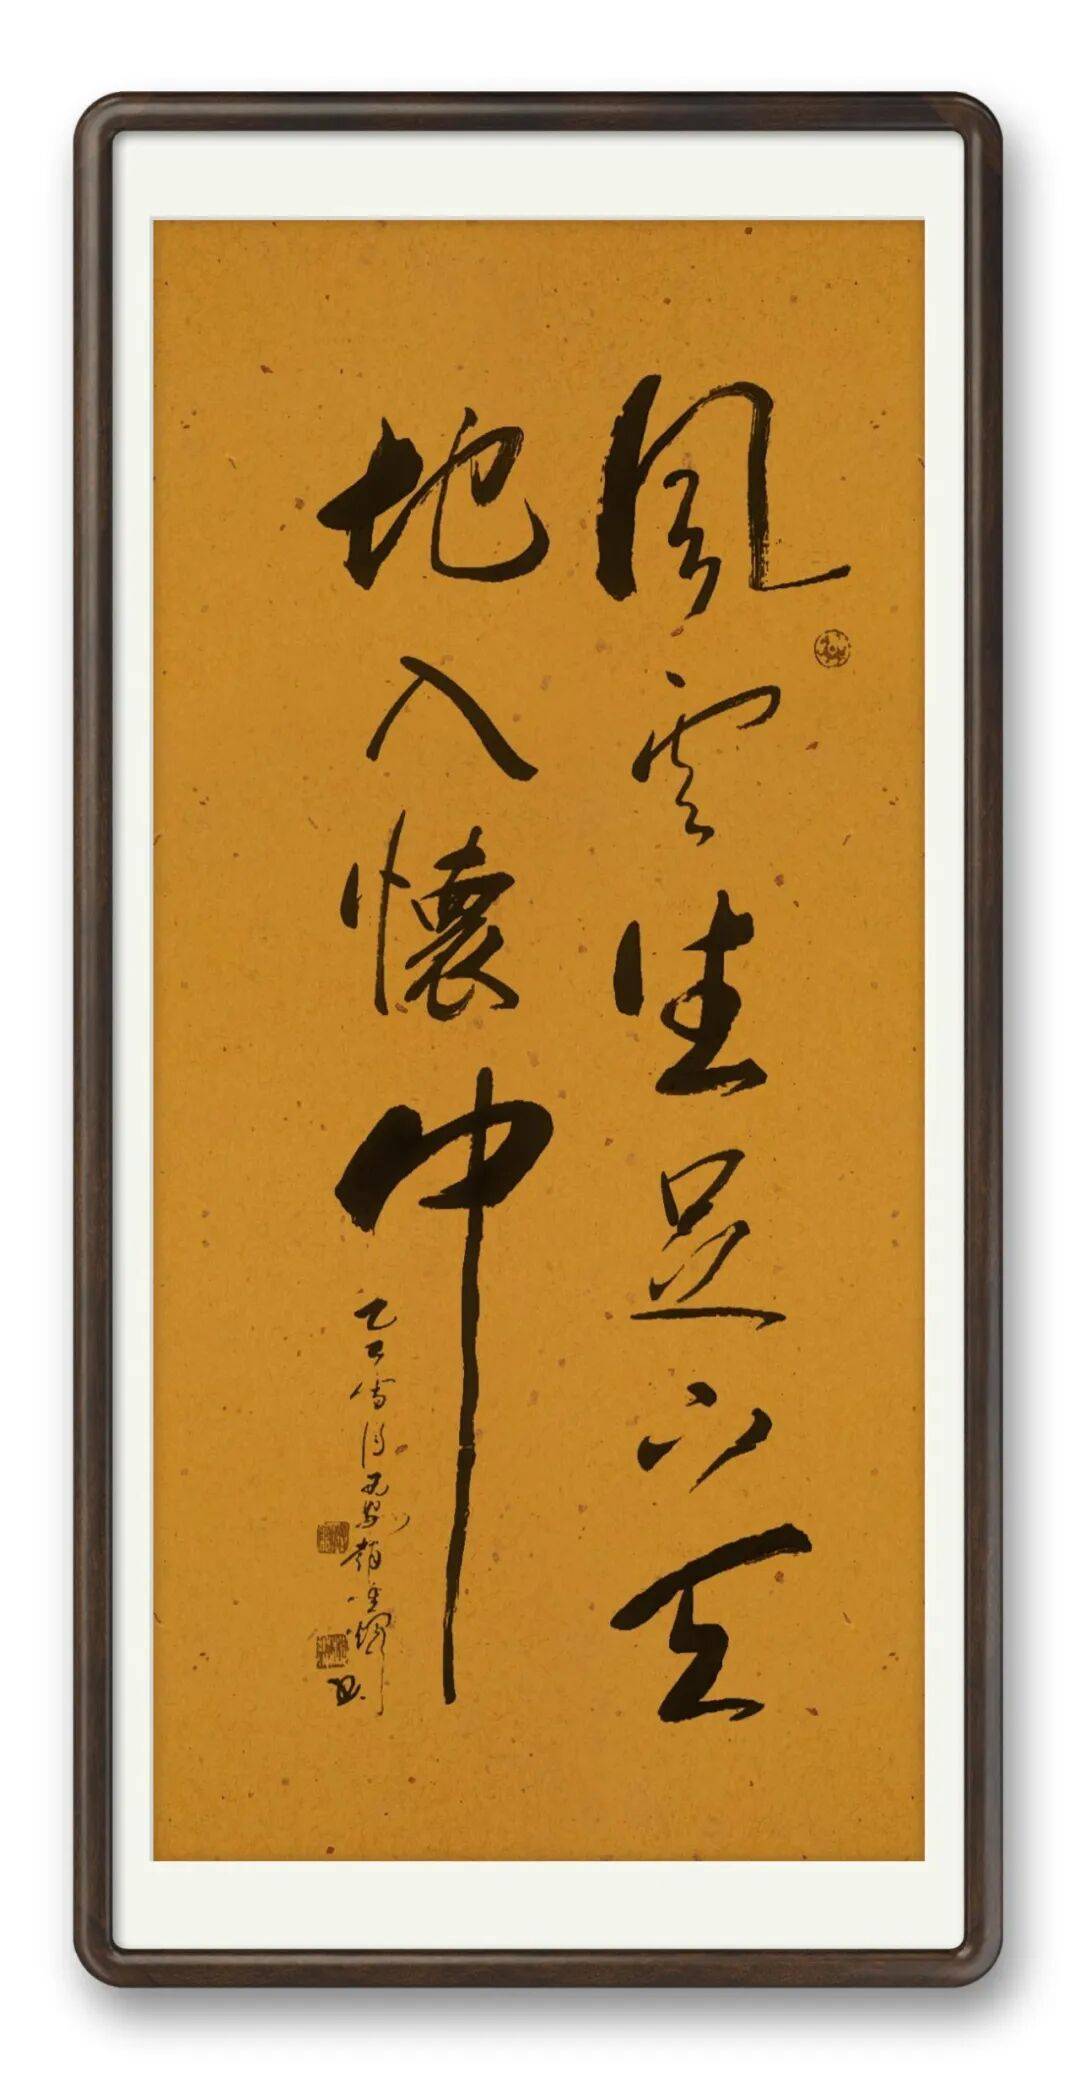 風雲生足下天
地入懷中
乙巳